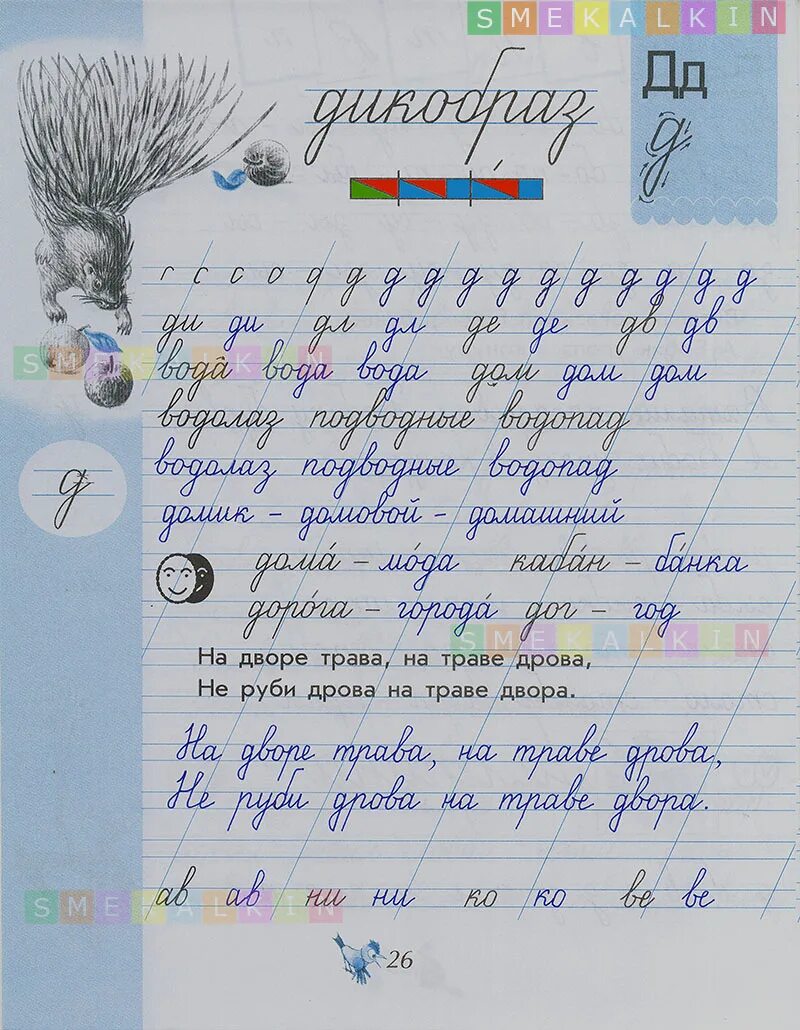 SMEKALKIN
Дд
дикобраз
д
г с с о д д д д д д д д д д д
ди ди дл дл де де дв дв
SMEKALKIN
вода вода вода дом дом дом
водолаз подводные водопад
водолаз подводные водопад
д
домик – домовой – домашний
дома́ – мо́да каба́н – ба́нка
доро́га – города́ дог – год
SMEKALKIN
На дворе трава, на траве дрова,
Не руби дрова на траве двора.
На дворе трава, на траве дрова,
Не руби дрова на траве двора.
ав ав ни ни ко ко ве ве
SMEKALKIN
26